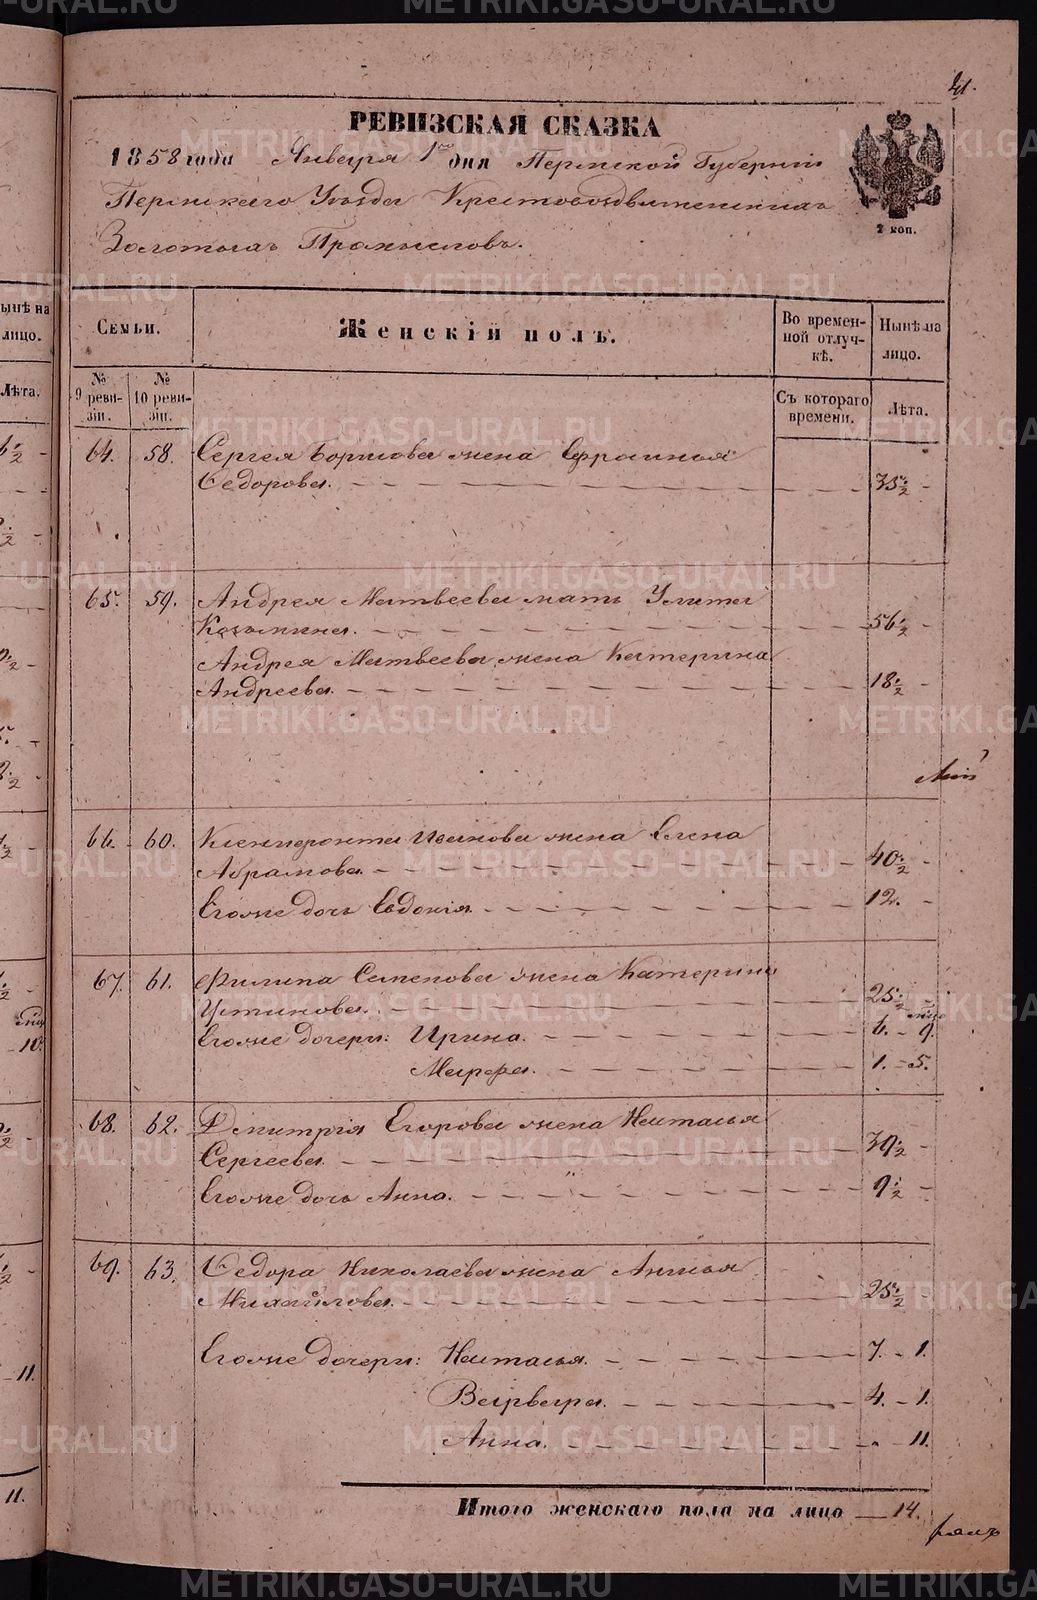 41.
РЕВИЗСКАЯ СКАЗКА
1858 года Января 1го дня Пермской Губернии
Пермскаго Уѣзда Крестовоздвиженскихъ
Золотыхъ Промысловъ.
2 коп.
Семьи.
Женскій полъ.
Во временной отлучкѣ.
Нынѣ на лицо.
№ 9 ревизіи.
№ 10 ревизіи.
Съ котораго времени.
Лѣта.
64. 58. Сергея Борисова жена Ефросинья
Ѳедорова. 35 1/2
65. 59. Андрея Матвеева мать Улита
Козьмина. 56 1/2
Андрея Матвеева жена Катерина
Андреева. 18 1/2
66. 60. Ксенофонта Иванова жена Елена
Абрамова. 40 1/2
Егоже дочь Евдокія. 12.
67. 61. Филипа Семенова жена Катерина
Устинова. 25 1/2
Егоже дочери: Ирина. 6. - 9.
Марфа. 1. - 5.
68. 62. Дмитрія Егорова жена Наталья
Сергеева. 39 1/2
Егоже дочь Анна. 9 1/2
69. 63. Ѳедора Николаева жена Анисья
Михайлова. 25 1/2
Егоже дочери: Наталья. 7. - 1.
Варвара. 4. - 1.
Анна. " - 11.
Итого женскаго пола на лицо 14.
METRIKI.GASO-URAL.RU